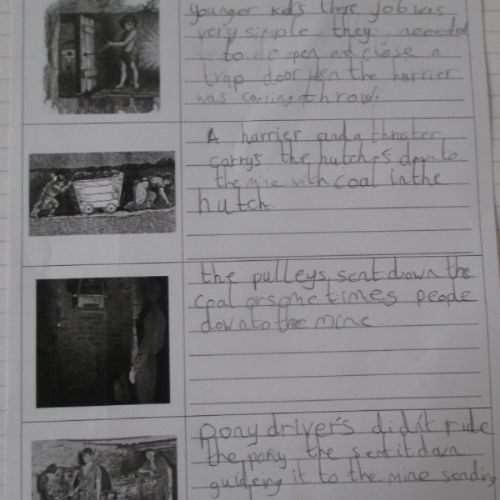 younger kids there job was
very simple they needed
to do open an close a
trap door wen the hurrier
was coming throw.
A hurrier and a thruster
carrys the hutches down to
the mine with coal in the
hutch.
the pulleys sent down the
coal or some times people
down to the mine.
Pony driver's didn't ride
the pony the sent it down
guideing it to the mine sending